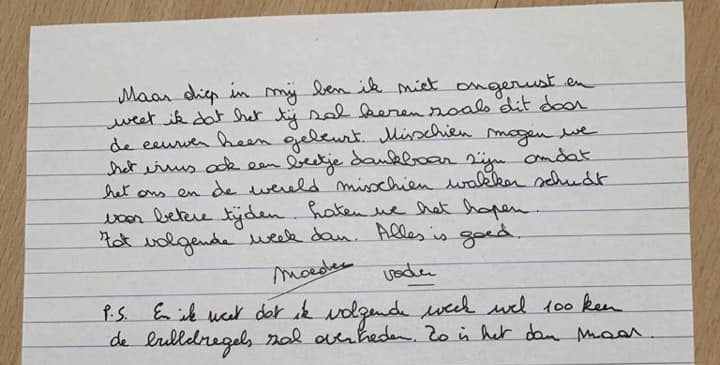 Maar diep in mij ben ik niet ongerust en
weet ik dat het tij zal keren zoals dit door
de eeuwen heen gebeurt. Misschien mogen we
het virus ook een beetje dankbaar zijn omdat
het ons en de wereld misschien wakker schudt
voor betere tijden. Laten we het hopen.
Tot volgende week dan. Alles is goed.
Moeder vader
P.S. En ik weet dat ik volgende week wel 100 keer
de bubbelregels zal overtreden. Zo is het dan maar.